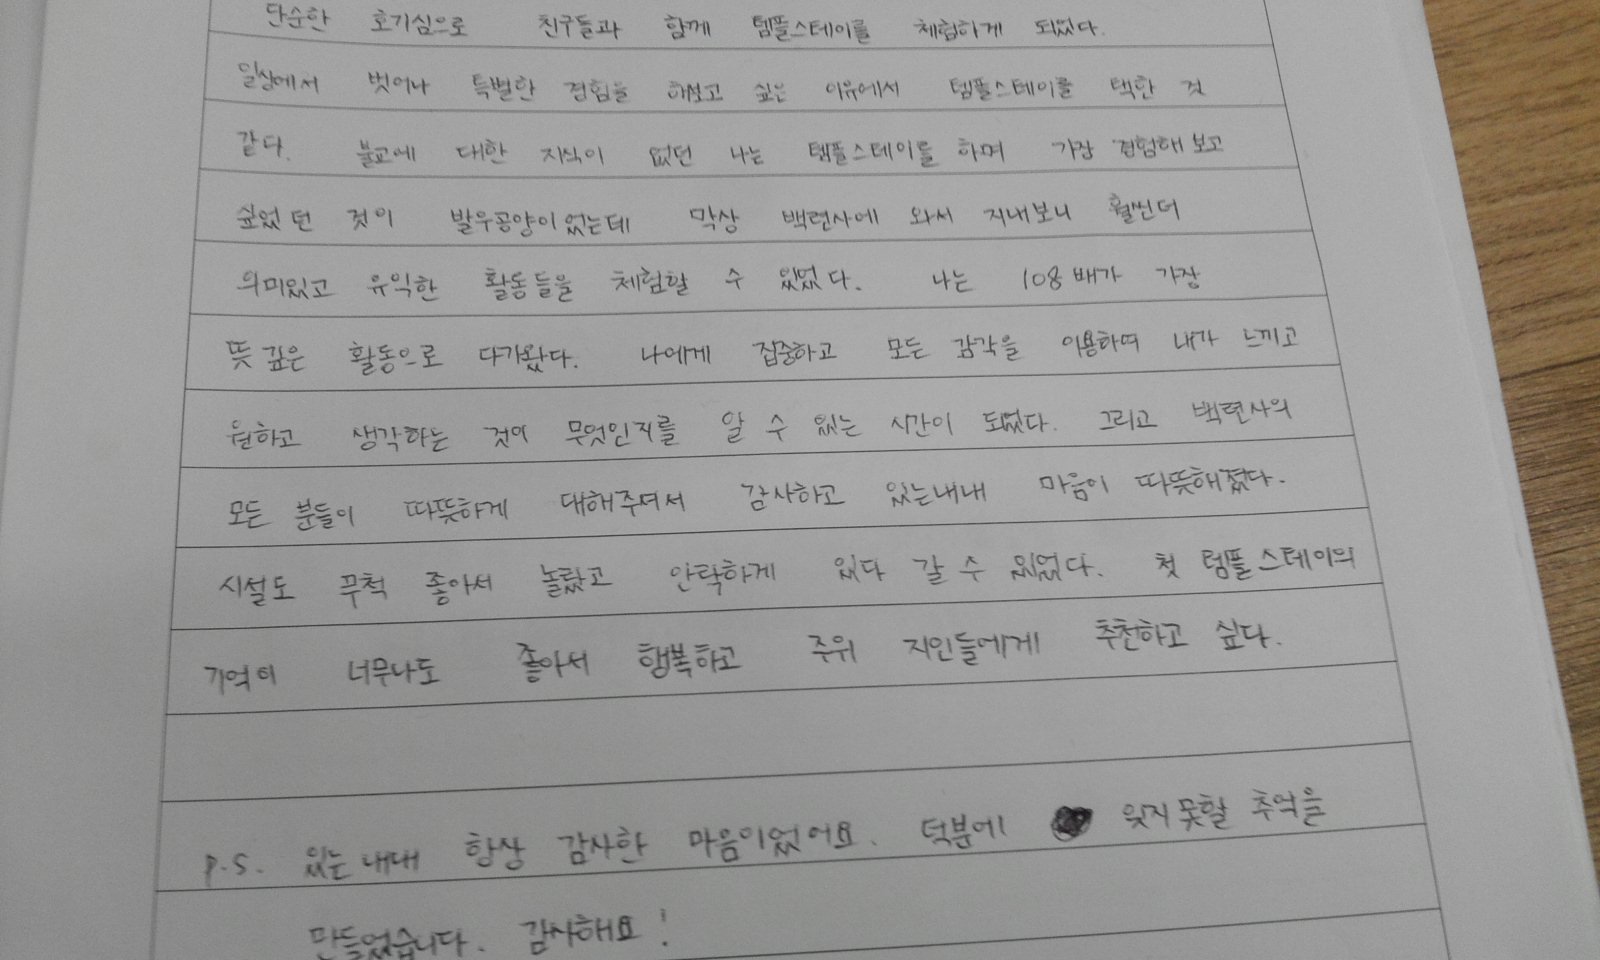 단순한 호기심으로 친구들과 함께 템플스테이를 체험하게 되었다.
일상에서 벗어나 특별한 경험을 해보고 싶은 이유에서 템플스테이를 택한 것
같다. 불교에 대한 지식이 없던 나는 템플스테이를 하며 가장 경험해 보고
싶었던 것이 발우공양이었는데 막상 백련사에 와서 지내보니 훨씬더
의미있고 유익한 활동들을 체험할 수 있었다. 나는 108배가 가장
뜻 깊은 활동으로 다가왔다. 나에게 집중하고 모든 감각을 이용하며 내가 느끼고
원하고 생각하는 것이 무엇인지를 알 수 있는 시간이 되었다. 그리고 백련사의
모든 분들이 따뜻하게 대해주셔서 감사하고 있는내내 마음이 따뜻해졌다.
시설도 무척 좋아서 놀랐고 안락하게 있다 갈 수 있었다. 첫 템플스테이의
기억이 너무나도 좋아서 행복하고 주위 지인들에게 추천하고 싶다.
P.S. 있는내내 항상 감사한 마음이었어요. 덕분에 잊지못할 추억을
만들었습니다. 감사해요!